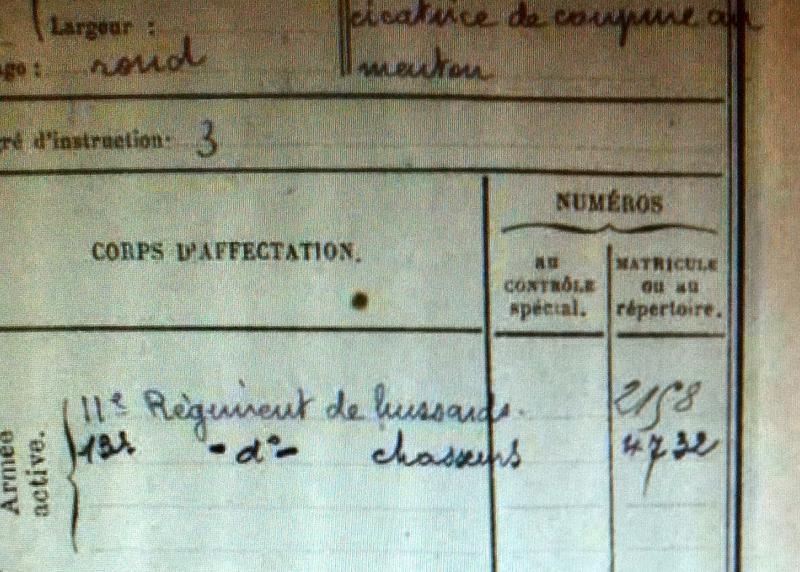 Largeur :
cicatrice de coupure au
rond
menton
d'instruction: 3
NUMÉROS
CORPS D'AFFECTATION.
au
CONTRÔLE
spécial.
MATRICULE
ou au
répertoire.
Armée
active.
11e Régiment de hussards. 2158
-do- chasseurs 4732